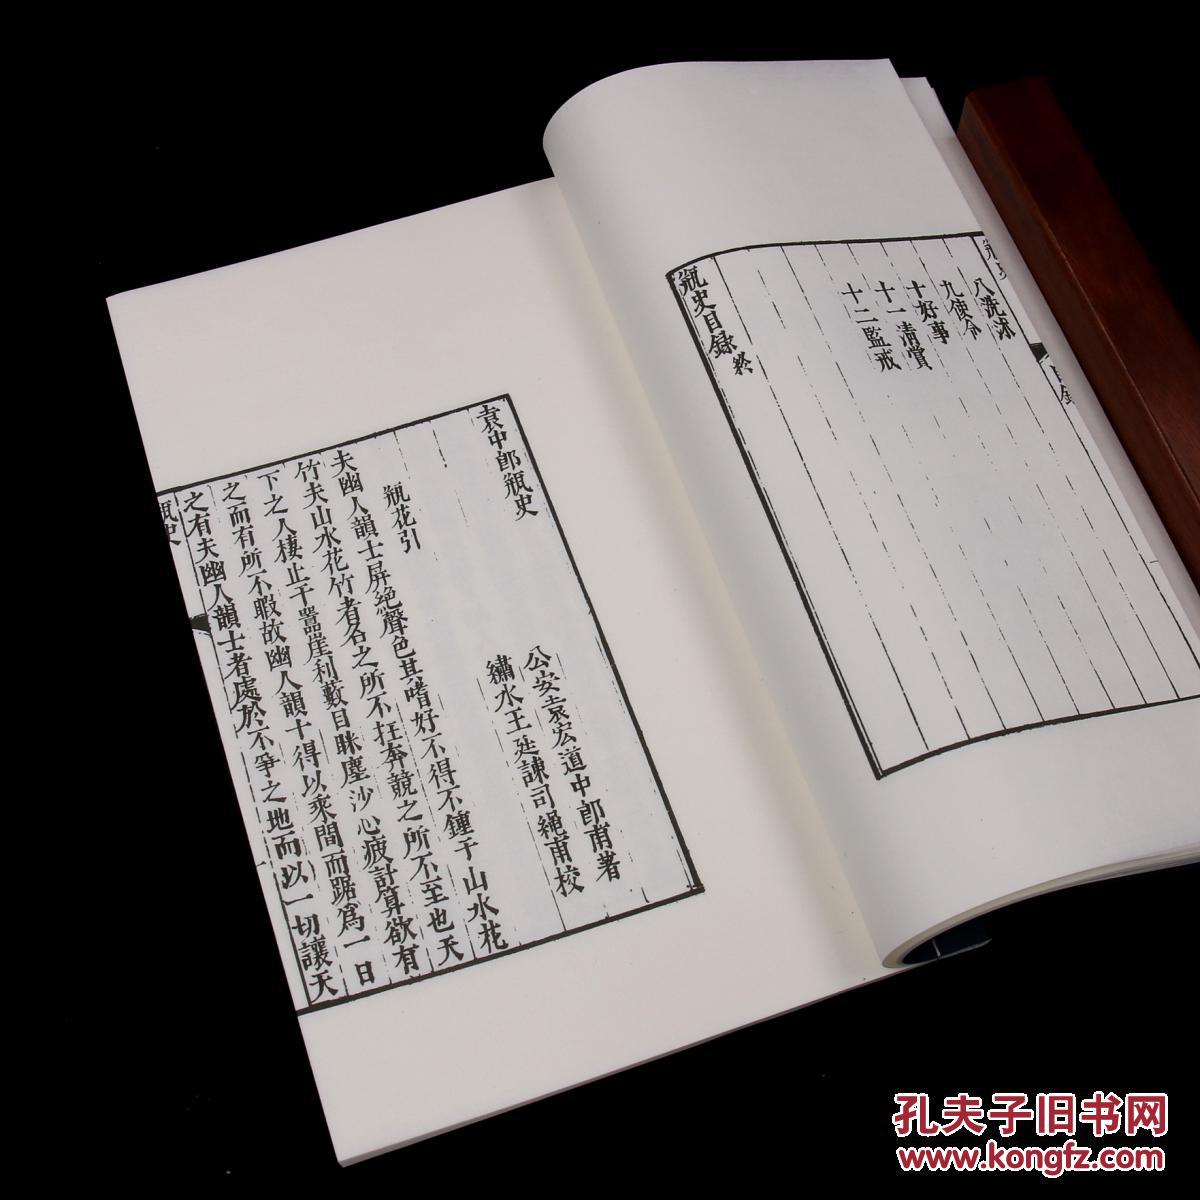 八洗沐
九使令
十好事
十一清賞
十二監戒
瓶史目錄終
袁中郎瓶史
公安袁宏道中郎甫著
繡水王廷諫司繩甫校
瓶花引
夫幽人韻士屏絕聲色其嗜好不得不鍾于山水花
竹夫山水花竹者名之所不在奔競之所不至也天
下之人棲止于嚣崖利藪目眯塵沙心疲計算欲有
之而有所不暇故幽人韻士得以乘間而踞爲一日
之有夫幽人韻士者處於不爭之地而以一切讓天
瓶史
孔夫子旧书网
www.kongfz.com